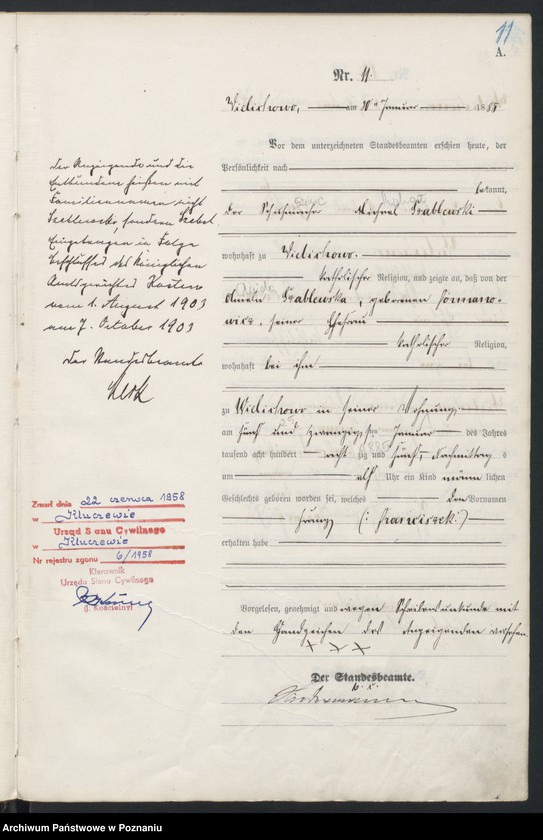 11
A.
Nr. 11.
Wielichowo, am 30ten Januar 1885
Vor dem unterzeichneten Standesbeamten erschien heute, der
Persönlichkeit nach
bekannt,
der Schuhmacher Michael Szablewski
wohnhaft zu Wielichowo.
katholischer Religion, und zeigte an, daß von der
Szablewska, geborenen
seiner Ehefrau
katholischer Religion,
wohnhaft bei ihm
zu Wielichowo in seiner Wohnung,
am fünf und zwanzigsten Januar des Jahres
tausend acht hundert acht zig und fünf, Nachmittags
um elf Uhr ein Kind männlichen
Geschlechts geboren worden sei, welches den Vornamen
Franz (: Franciszek :)
erhalten habe
Vorgelesen, genehmigt und wegen Schreibensunkunde mit
den Handzeichen des Anzeigenden versehen.
+ × ×
Der Standesbeamte.
Der Anzeigende und die
führen mit
Familiennamen nicht
sondern
Eingetragen in Folge
Beschlusses des Königlichen
Amtsgerichts Kosten
vom 1. August 1903
am 7. October 1903
Der Standesbeamte
Zmarł dnia 22 czerwca 1958
w Kluczewie
Urząd Stanu Cywilnego
w Kluczewie
Nr rejestru zgonu 6/1958
Kierownik
Urzędu Stanu Cywilnego
Archiwum Państwowe w Poznaniu